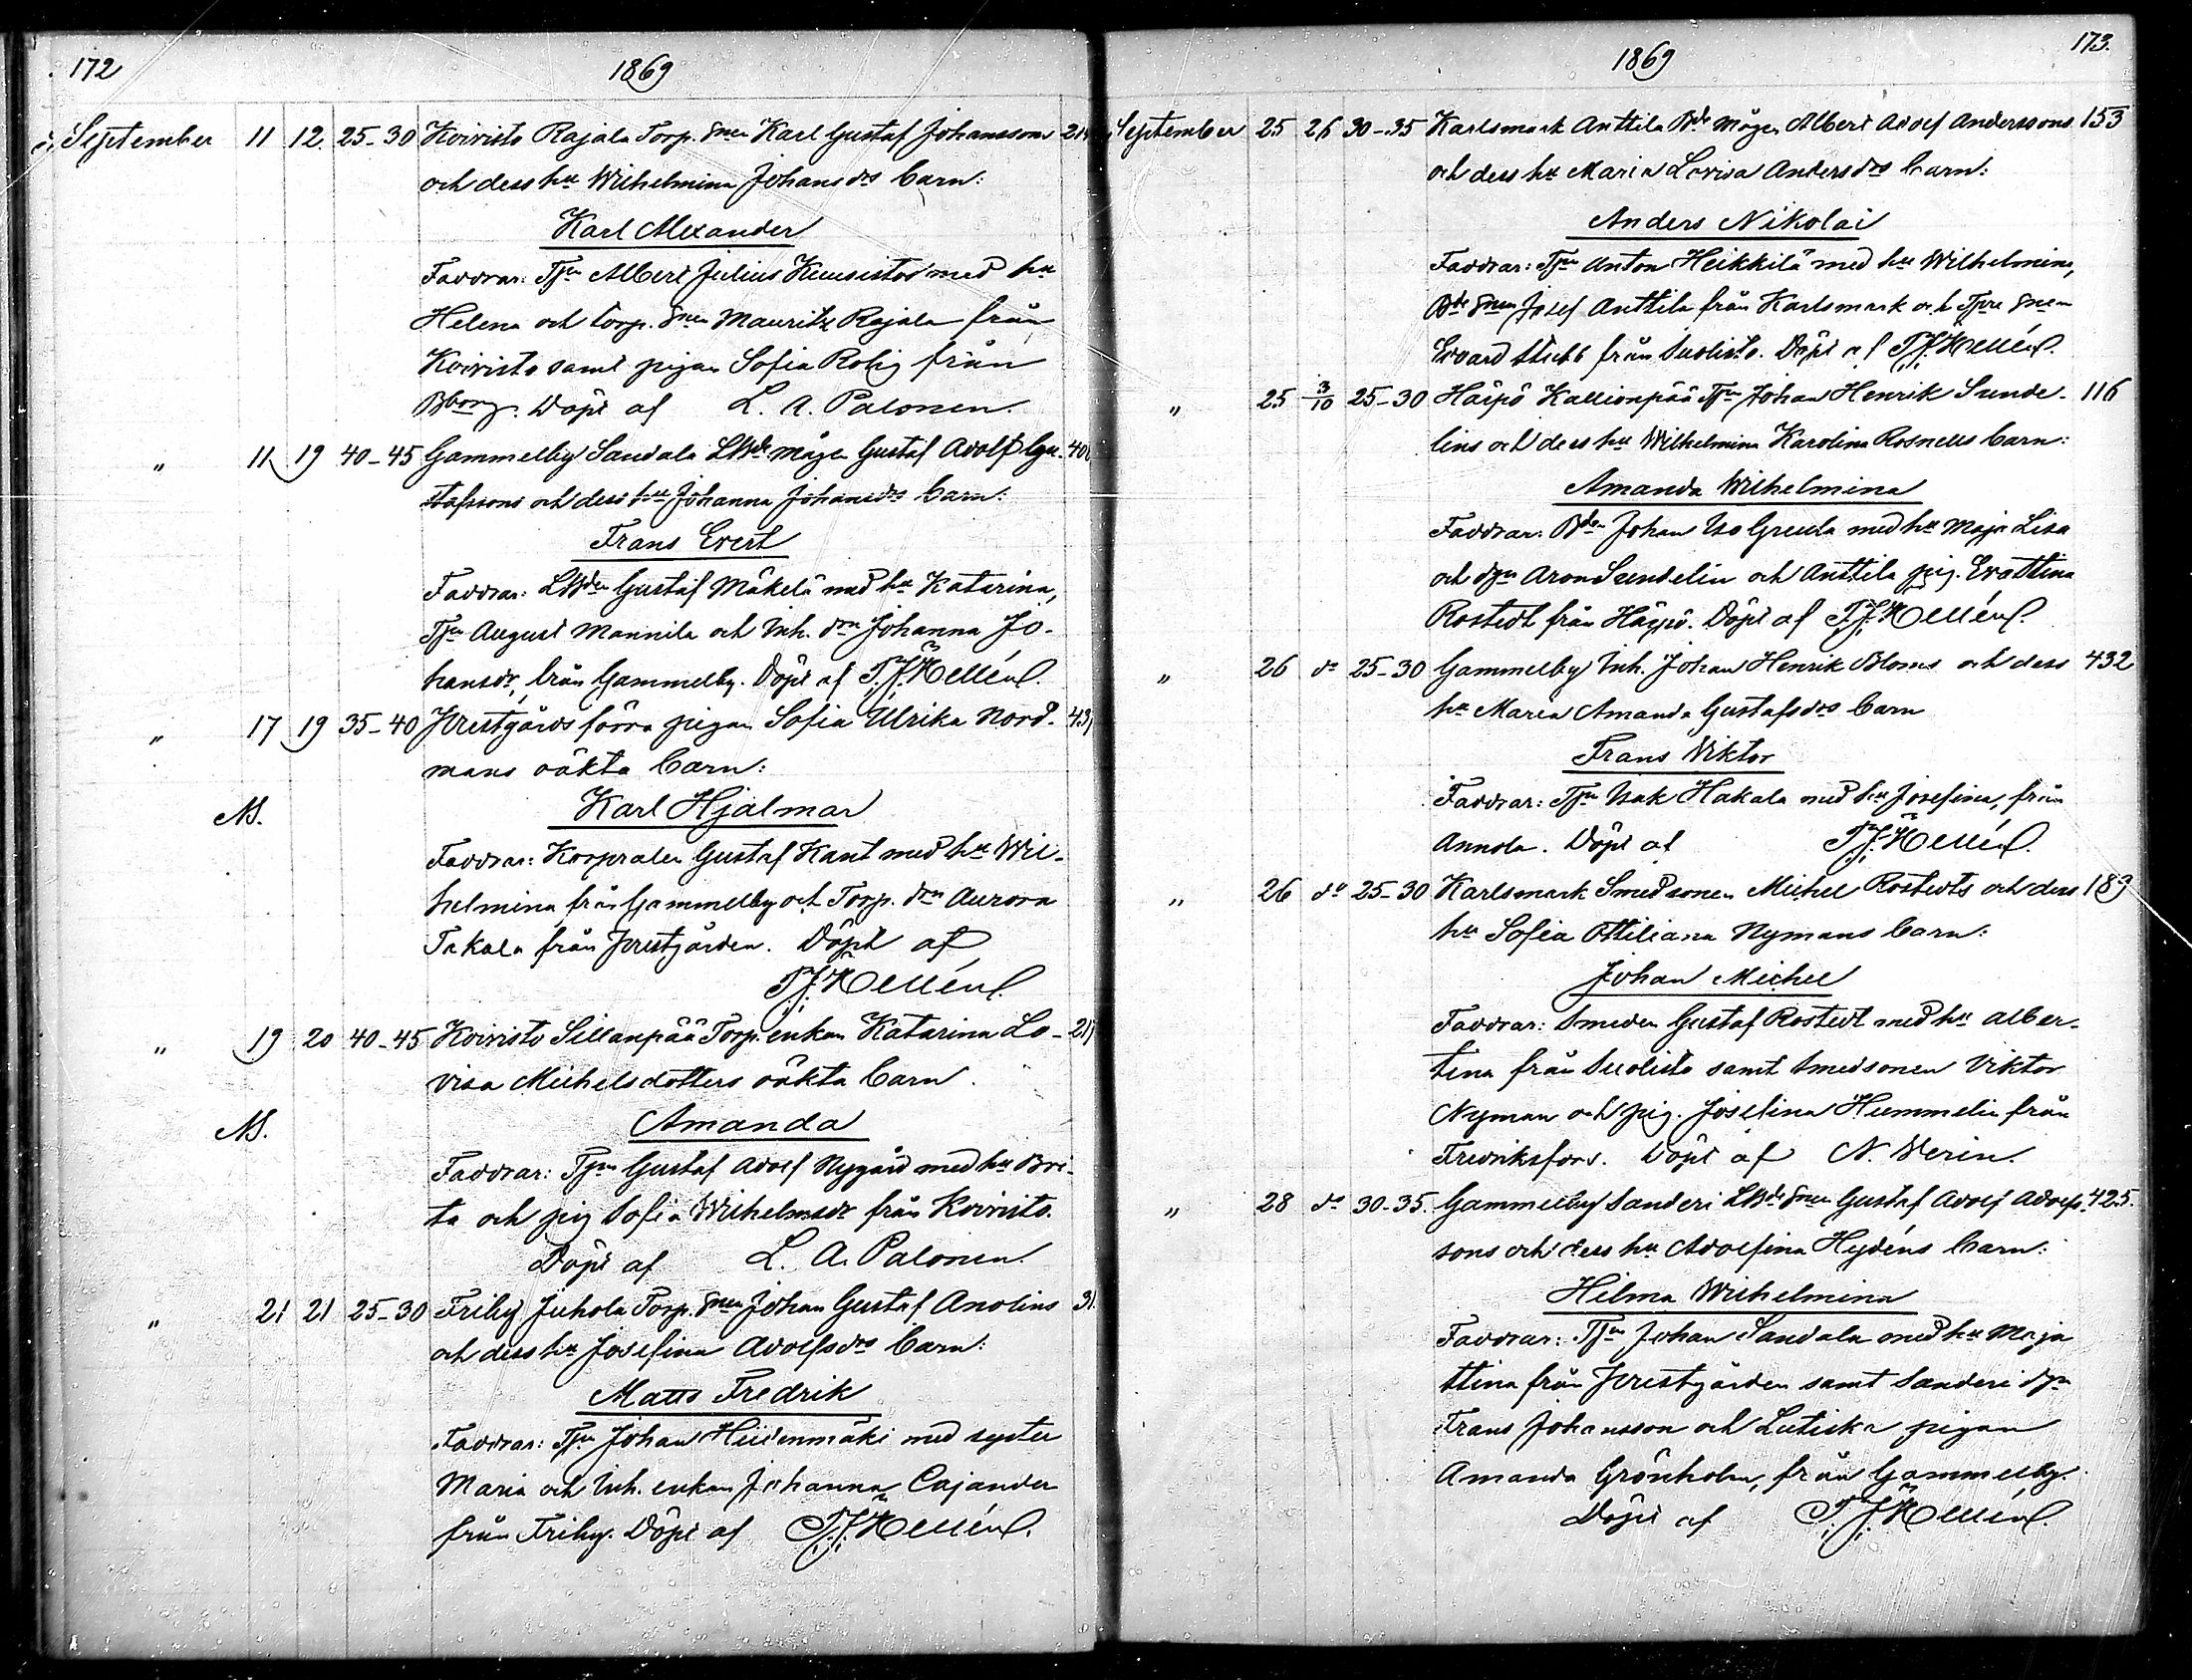 172
1869
September 11 12. 25-30 Koivisto Rajala Torp. Snen Karl Gustaf Johanssons
och dess hu Wilhelmina Johansdrs barn:
Karl Alexander
Faddrar: Tjn Albert Julius Kuusistos med hu
Helena och torp. Snen Mauritz Rajala från
Koivisto samt pigan Sofia Rolig från
Bborg. Döpt af L. A. Palonen.
" 11 19 40-45 Gammelby Sandala LBde mågen Gustaf Adolf Gu-
stafssons och dess hu Johanna Johansdrs barn:
Frans Evert
Faddrar: LBden Gustaf Mäkelä med hu Katarina,
Tjn August Mannila och Inh. drn Johanna Jo-
hansdr, från Gammelby. Döpt af T. J. Hellén.
" 17 19 35-40 Prestgårds förra pigan Sofia Ulrika Nord- 431
mans oäkta barn:
NB.
Karl Hjalmar
Faddrar: Korpralen Gustaf Kant med hu Wil-
helmina från Gammelby och Torp. drn Aurora
Takala från Prestgården. Döpt af
T. J. Hellén.
" 19 20 40-45 Koivisto Sillanpää Torp. enkan Katarina Lo-
visa Michelsdotters oäkta barn.
NB.
Amanda
Faddrar: Tjn Gustaf Adolf Nygård med hu Bri-
ta och pig Sofia Wilhelmsdr från Koivisto.
Döpt af L. A. Palonen.
" 21 21 25-30 Friby Juhola Torp. Snen Johan Gustaf Anolins 31.
och dess hu Josefina Adolfsdrs barn:
Matts Fredrik
Faddrar: Tjn Johan Hiidenmäki med syster
Maria och Inh. enkan Johanna Cajander
från Friby. Döpt af T. J. Hellén.
173.
1869
September 25 26 30-35 Karlsmark Anttila Bde mågen Albert Adolf Anderssons 153
och dess hu Maria Lovisa Andersdrs barn:
Anders Nikolai
Faddrar: Tjn Anton Heikkilä med hu Wilhelmina,
Bde Snen Josef Anttila från Karlsmark och Tjre Snen
Edvard Stubb från Suolisto. Döpt af T. J. Hellén.
" 25 3/10 25-30 Haipö Kallionpää Tjn Johan Henrik Sunde- 116
lins och dess hu Wilhelmina Karolina Rosnells barn:
Amanda Wilhelmina
Faddrar: Bden Johan Iso Greula med hu Maja Lisa
och dgn Aron Sundelin och Anttila pig. Eva Stina
Rostedt från Haipö. Döpt af T. J. Hellén.
" 26 do 25-30 Gammelby Inh. Johan Henrik Bloms och dess 432
hu Maria Amanda Gustafsdrs barn
Frans Viktor
Faddrar: Tjn Isak Hakala med hu Josefina, från
Annola. Döpt af T. J. Hellén.
" 26 do 25-30 Karlsmark Smedsonen Michel Rostedts och dess 189
hu Sofia Ottiliana Nymans barn:
Johan Michel
Faddrar: Smeden Gustaf Rostedt med hu Alber-
tina från Suolisto samt Smedsonen Viktor
Nyman och pig. Josefina Hummelin från
Fredriksfors. Döpt af N. Werin.
" 28 do 30-35. Gammelby Sanderi LBde Snen Gustaf Adolf Adolfs- 425.
sons och dess hu Adolfina Hydéns barn:
Hilma Wilhelmina
Faddrar: Tjn Johan Sandala med hu Maja
Stina från Prestgården samt Sanderi dgn
Frans Johansson och Lutiska pigan
Amanda Grönholm, från Gammelby.
Döpt af T. J. Hellén.